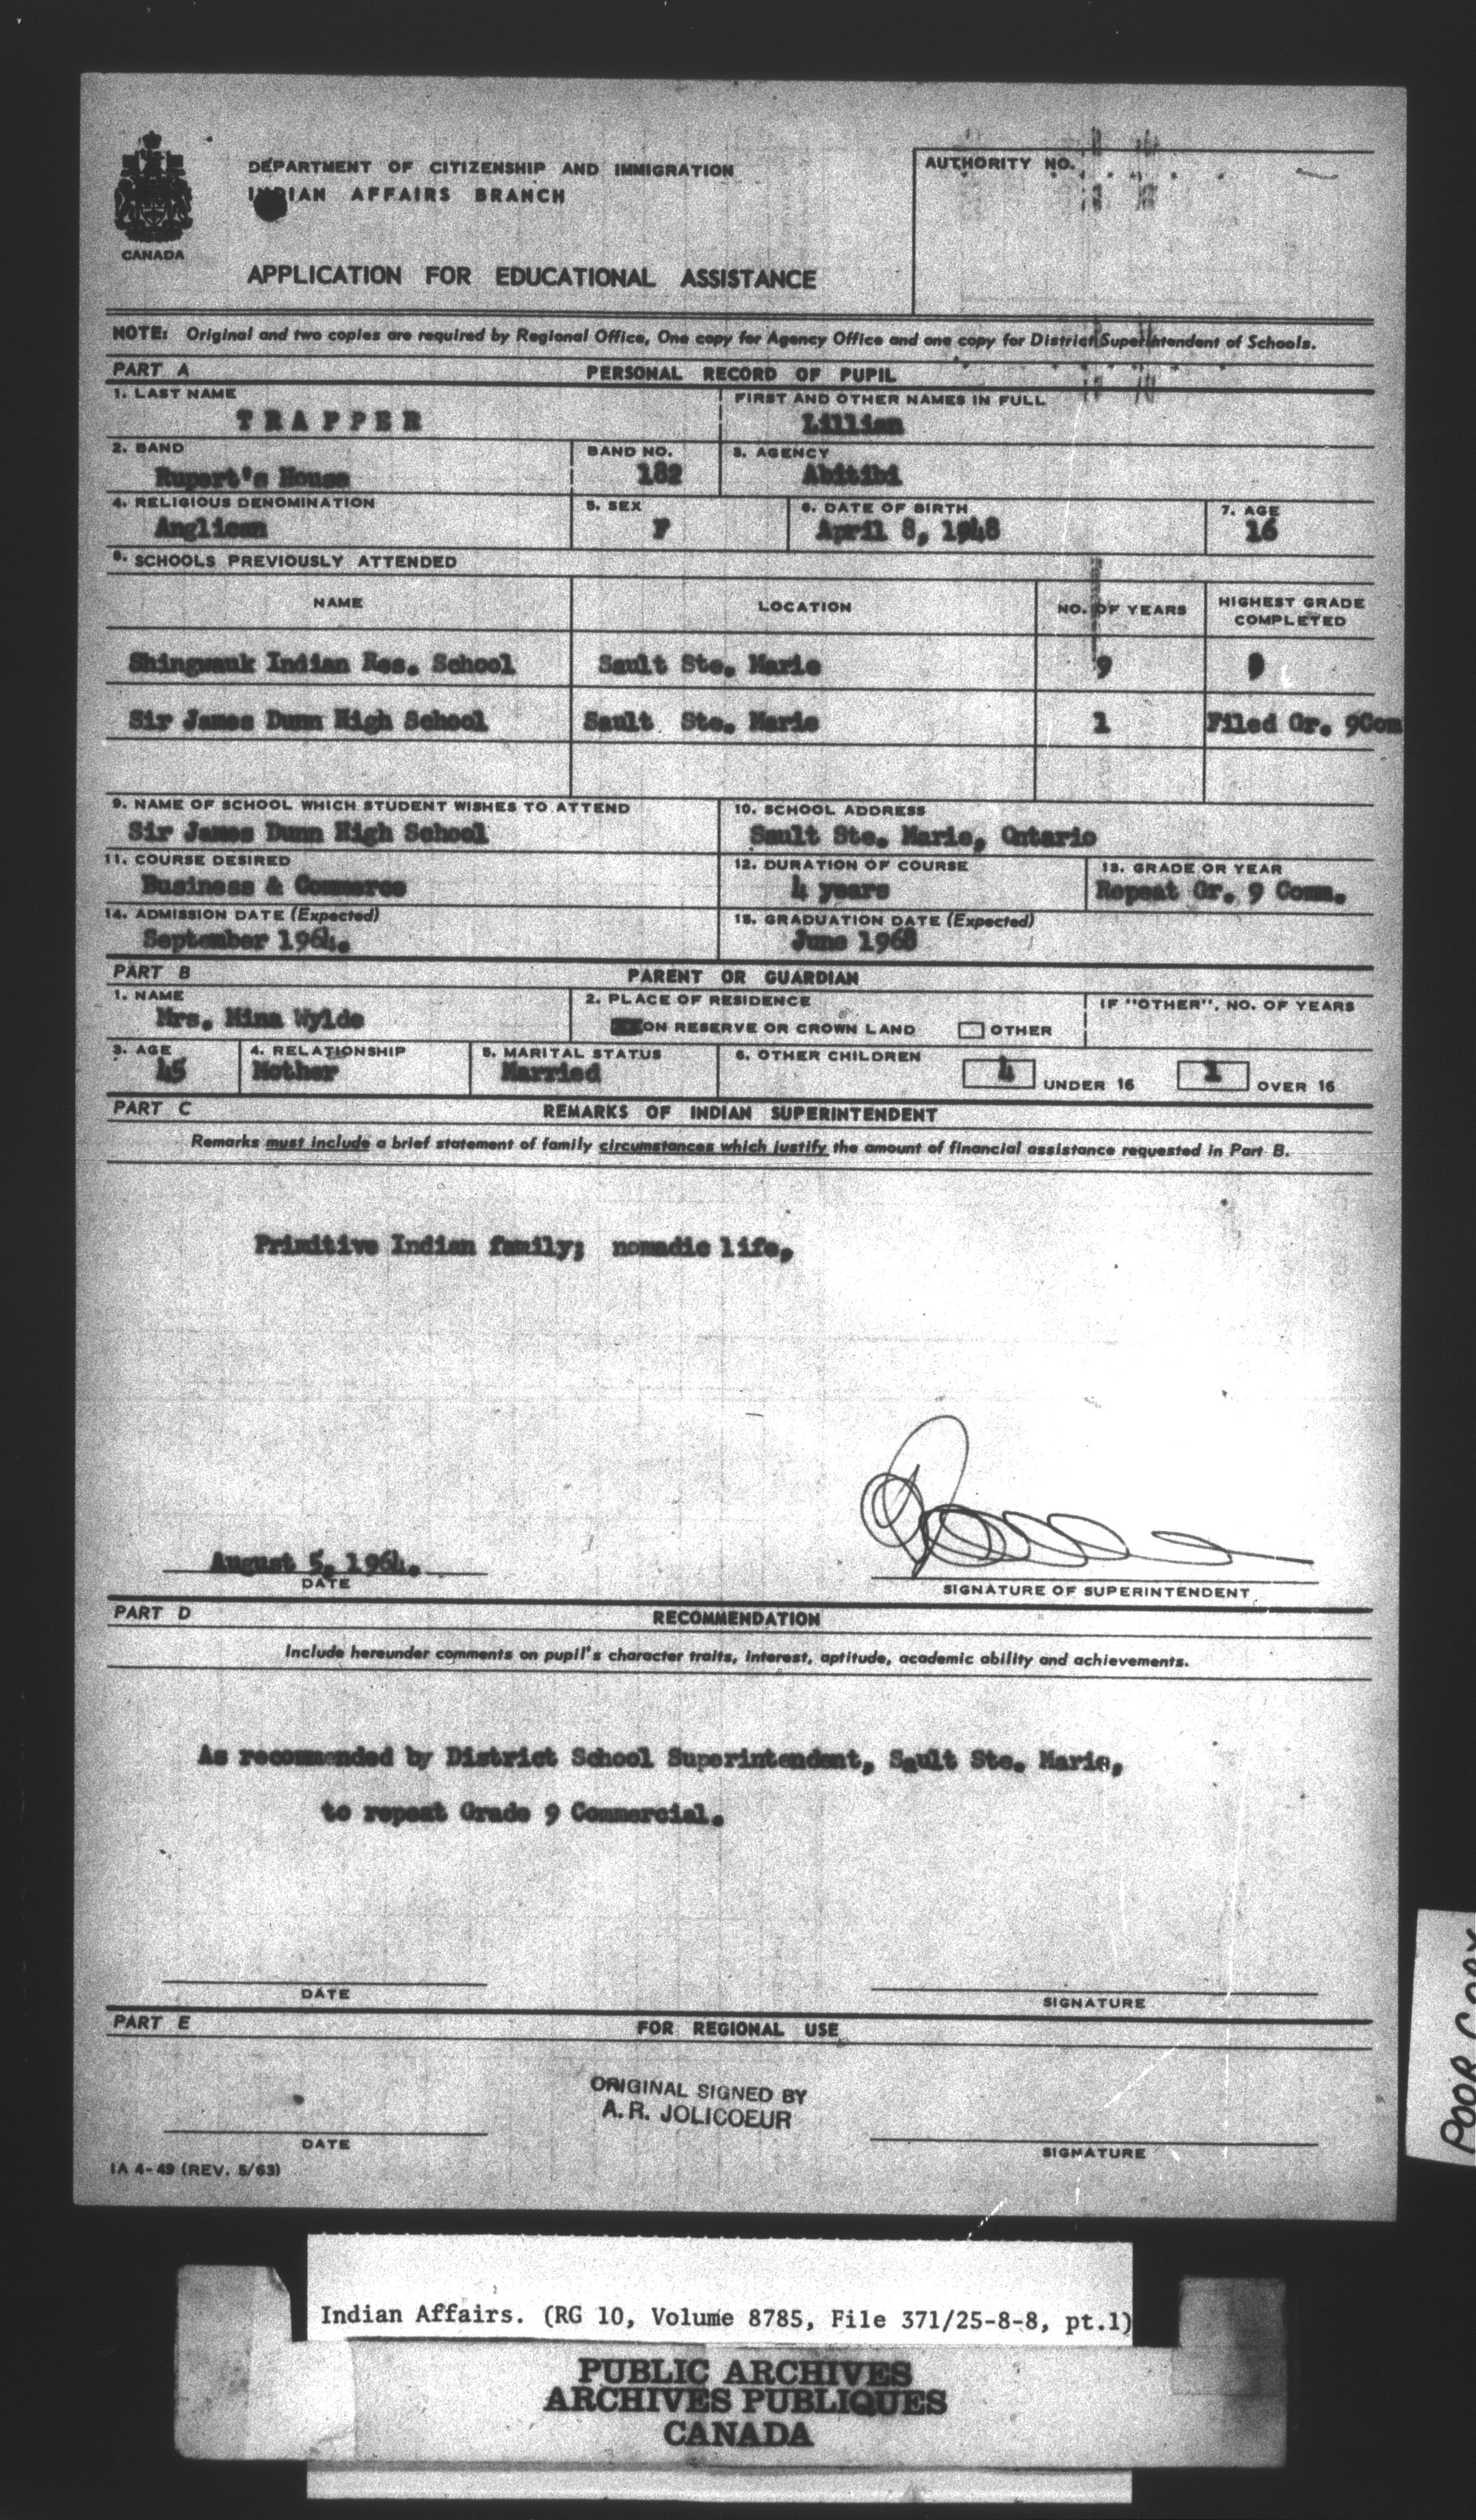 DEPARTMENT OF CITIZENSHIP AND IMMIGRATION
INDIAN AFFAIRS BRANCH
CANADA
APPLICATION FOR EDUCATIONAL ASSISTANCE
AUTHORITY NO.
NOTE: Original and two copies are required by Regional Office, One copy for Agency Office and one copy for District Superintendent of Schools.
PART A PERSONAL RECORD OF PUPIL
1. LAST NAME FIRST AND OTHER NAMES IN FULL
TRAPPER Lillian
2. BAND BAND NO. 3. AGENCY
Rupert's House 182 Abitibi
4. RELIGIOUS DENOMINATION 5. SEX 6. DATE OF BIRTH 7. AGE
Anglican F April 8, 1948 16
8. SCHOOLS PREVIOUSLY ATTENDED
NAME LOCATION NO. OF YEARS HIGHEST GRADE COMPLETED
Shingwauk Indian Res. School Sault Ste. Marie 9
Sir James Dunn High School Sault Ste. Marie 1 Filed Gr. 9Com
9. NAME OF SCHOOL WHICH STUDENT WISHES TO ATTEND 10. SCHOOL ADDRESS
Sir James Dunn High School Sault Ste. Marie, Ontario
11. COURSE DESIRED 12. DURATION OF COURSE 13. GRADE OR YEAR
Business & Commerce 4 years Repeat Gr. 9 Comm.
14. ADMISSION DATE (Expected) 15. GRADUATION DATE (Expected)
September 1964. June 1968
PART B PARENT OR GUARDIAN
1. NAME 2. PLACE OF RESIDENCE IF "OTHER", NO. OF YEARS
Mrs. Mina Wylde ON RESERVE OR CROWN LAND OTHER
3. AGE 4. RELATIONSHIP 5. MARITAL STATUS 6. OTHER CHILDREN
45 Mother Married 4 UNDER 16 1 OVER 16
PART C REMARKS OF INDIAN SUPERINTENDENT
Remarks must include a brief statement of family circumstances which justify the amount of financial assistance requested in Part B.
Primitive Indian family; nomadic life,
August 5, 1964.
DATE SIGNATURE OF SUPERINTENDENT
PART D RECOMMENDATION
Include hereunder comments on pupil's character traits, interest, aptitude, academic ability and achievements.
As recommended by District School Superintendent, Sault Ste. Marie,
to repeat Grade 9 Commercial.
DATE SIGNATURE
PART E FOR REGIONAL USE
ORIGINAL SIGNED BY
A. R. JOLICOEUR
DATE SIGNATURE
IA 4-49 (REV. 5/63)
POOR COPY
Indian Affairs. (RG 10, Volume 8785, File 371/25-8-8, pt.1)
PUBLIC ARCHIVES
ARCHIVES PUBLIQUES
CANADA